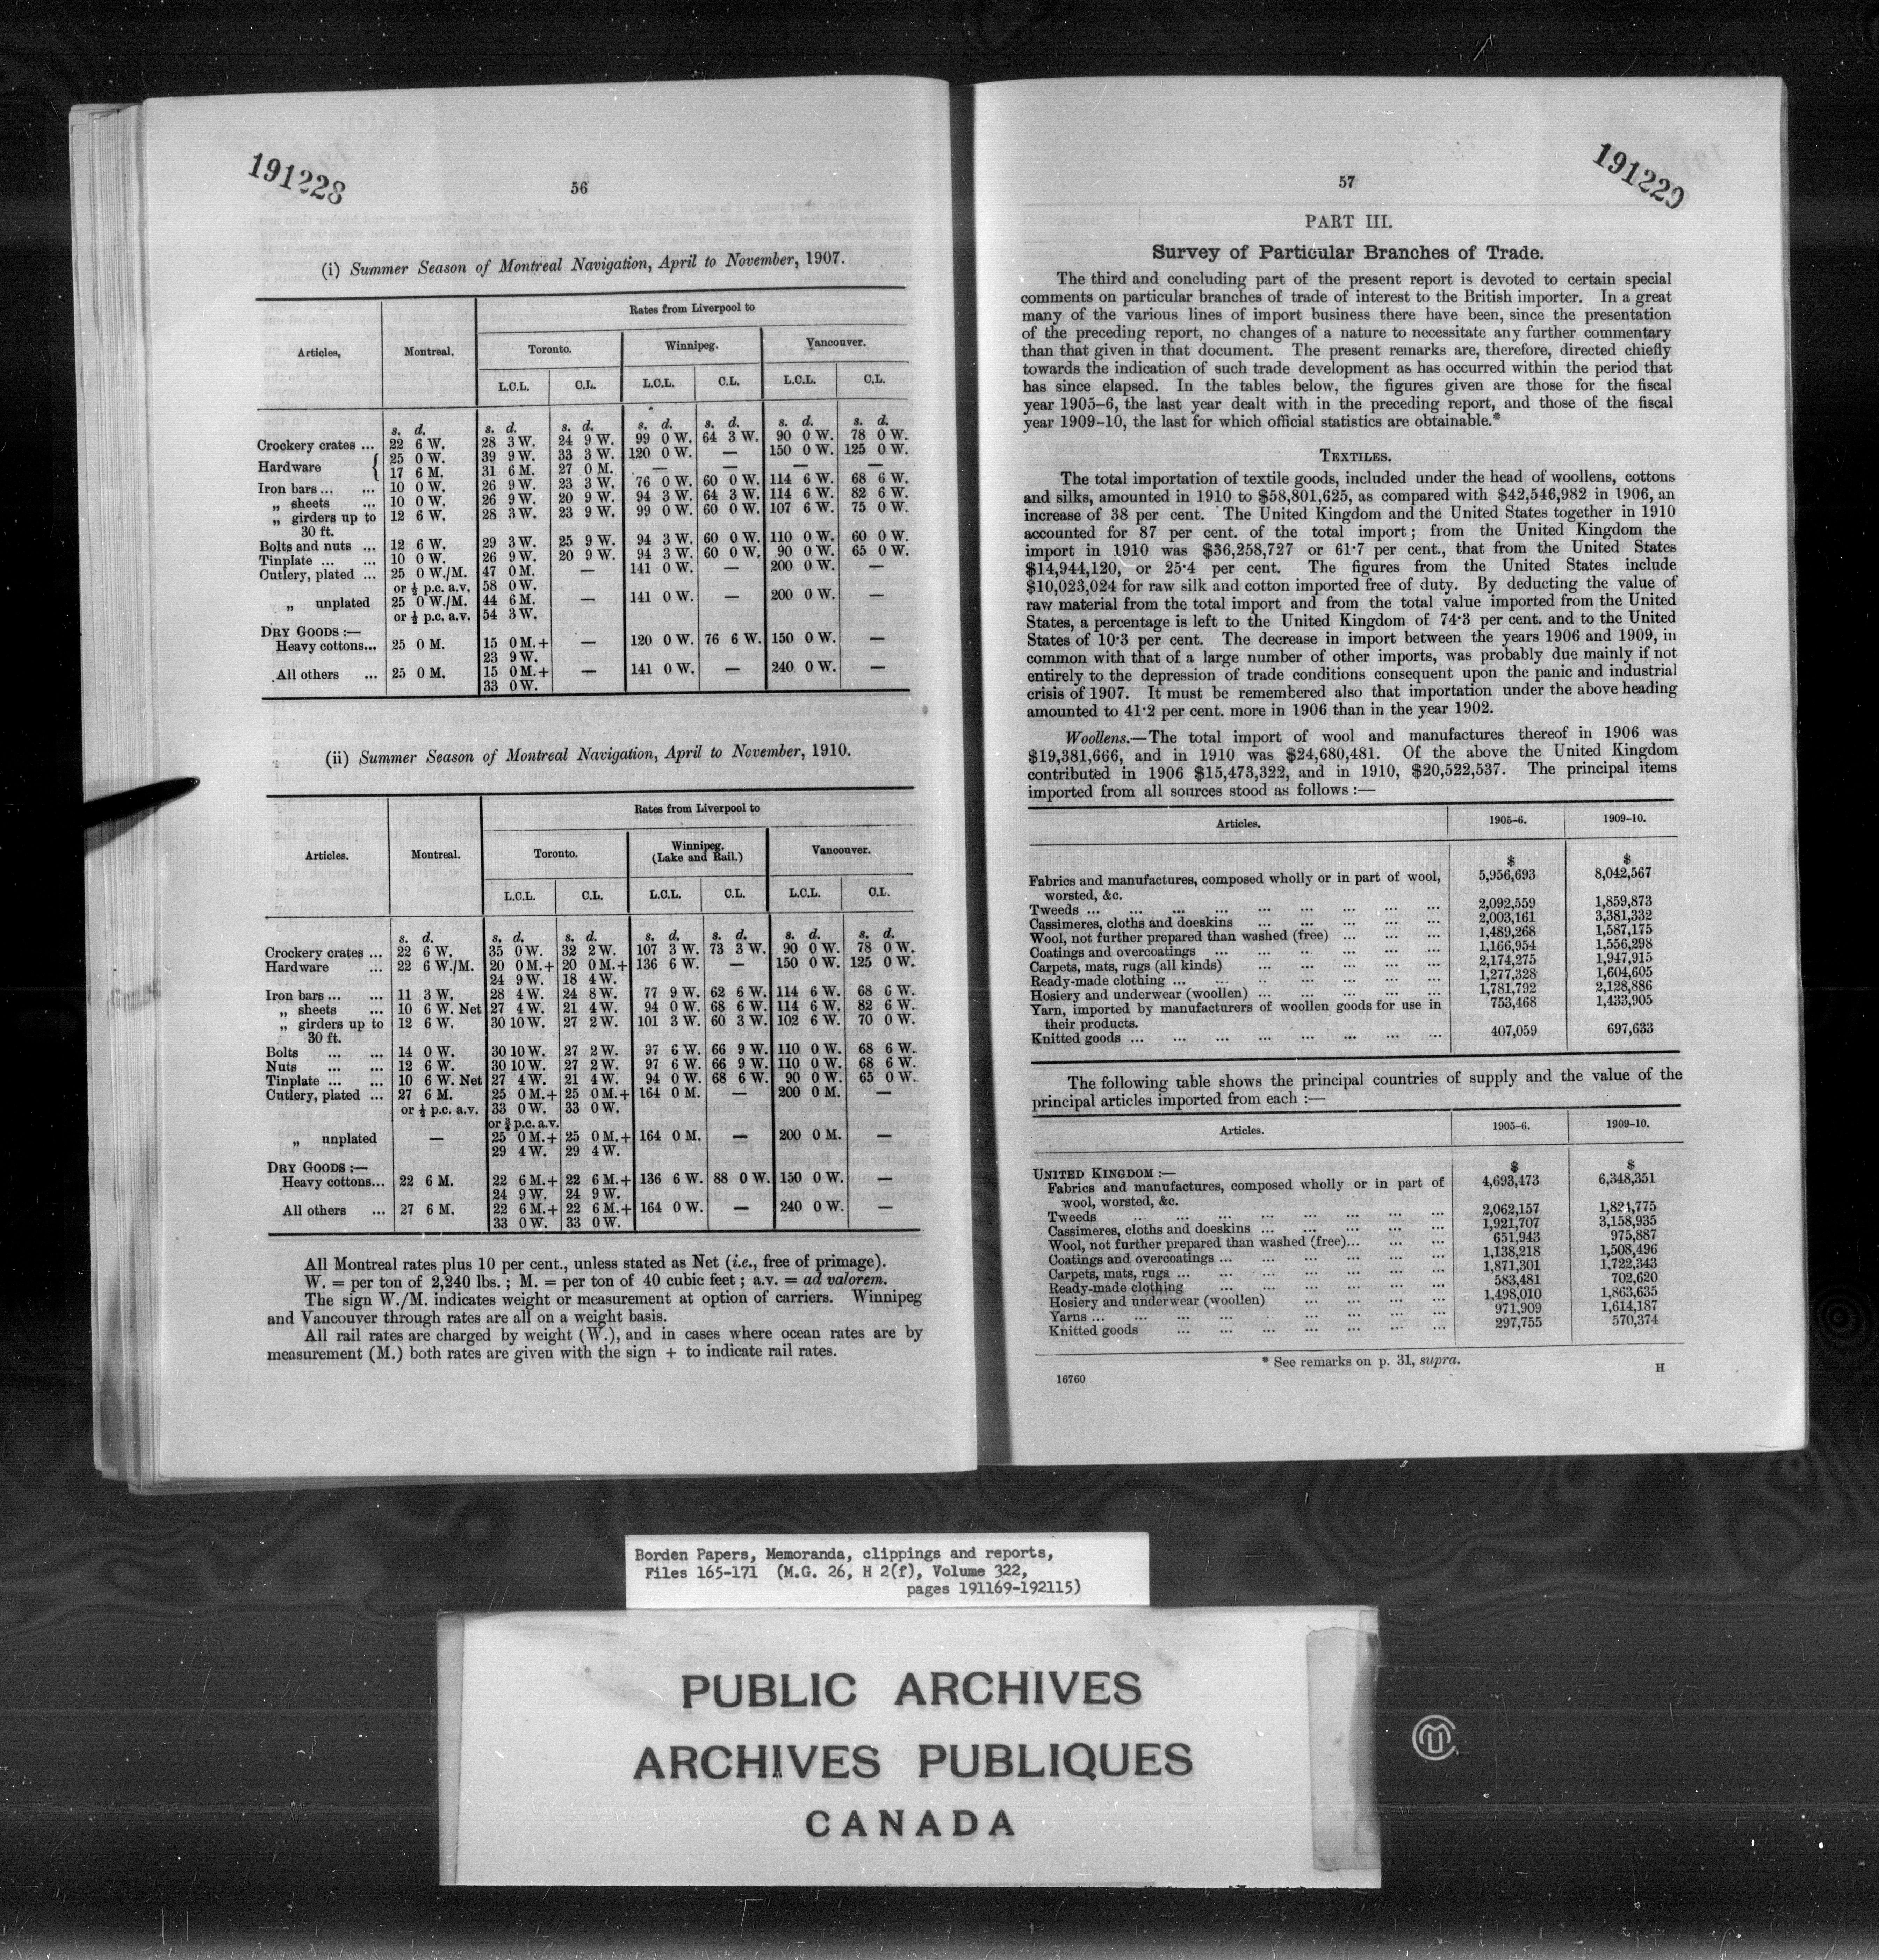 191228
56
(i) Summer Season of Montreal Navigation, April to November, 1907.
Articles, Montreal. Rates from Liverpool to
Toronto. Winnipeg. Vancouver.
L.C.L. C.L. L.C.L. C.L. L.C.L. C.L.
s. d. s. d. s. d. s. d. s. d. s. d. s. d.
Crockery crates ... 22 6 W. 28 3 W. 24 9 W. 99 0 W. 64 3 W. 90 0 W. 78 0 W.
Hardware { 25 0 W. 39 9 W. 33 3 W. 120 0 W. — 150 0 W. 125 0 W.
17 6 M. 31 6 M. 27 0 M. — — — —
Iron bars ... ... 10 0 W. 26 9 W. 23 3 W. 76 0 W. 60 0 W. 114 6 W. 68 6 W.
„ sheets ... 10 0 W. 26 9 W. 20 9 W. 94 3 W. 64 3 W. 114 6 W. 82 6 W.
„ girders up to 12 6 W. 28 3 W. 23 9 W. 99 0 W. 60 0 W. 107 6 W. 75 0 W.
30 ft.
Bolts and nuts ... 12 6 W. 29 3 W. 25 9 W. 94 3 W. 60 0 W. 110 0 W. 60 0 W.
Tinplate ... ... 10 0 W. 26 9 W. 20 9 W. 94 3 W. 60 0 W. 90 0 W. 65 0 W.
Cutlery, plated ... 25 0 W./M. 47 0 M. — 141 0 W. — 200 0 W. —
or ½ p.c. a.v. 58 0 W.
„ unplated 25 0 W./M. 44 6 M. — 141 0 W. — 200 0 W. —
or ½ p.c. a.v. 54 3 W.
DRY GOODS :—
Heavy cottons... 25 0 M. 15 0 M.+ — 120 0 W. 76 6 W. 150 0 W. —
23 9 W.
All others ... 25 0 M. 15 0 M.+ — 141 0 W. — 240 0 W. —
33 0 W.
(ii) Summer Season of Montreal Navigation, April to November, 1910.
Articles. Montreal. Rates from Liverpool to
Toronto. Winnipeg. (Lake and Rail.) Vancouver.
L.C.L. C.L. L.C.L. C.L. L.C.L. C.L.
s. d. s. d. s. d. s. d. s. d. s. d. s. d.
Crockery crates ... 22 6 W. 35 0 W. 32 2 W. 107 3 W. 73 3 W. 90 0 W. 78 0 W.
Hardware ... 22 6 W./M. 20 0 M.+ 20 0 M.+ 136 6 W. — 150 0 W. 125 0 W.
24 9 W. 18 4 W.
Iron bars ... ... 11 3 W. 28 4 W. 24 8 W. 77 9 W. 62 6 W. 114 6 W. 68 6 W.
„ sheets ... 10 6 W. Net 27 4 W. 21 4 W. 94 0 W. 68 6 W. 114 6 W. 82 6 W.
„ girders up to 12 6 W. 30 10 W. 27 2 W. 101 3 W. 60 3 W. 102 6 W. 70 0 W.
30 ft.
Bolts ... ... 14 0 W. 30 10 W. 27 2 W. 97 6 W. 66 9 W. 110 0 W. 68 6 W.
Nuts ... ... 12 6 W. 30 10 W. 27 2 W. 97 6 W. 66 9 W. 110 0 W. 68 6 W.
Tinplate ... ... 10 6 W. Net 27 4 W. 21 4 W. 94 0 W. 68 6 W. 90 0 W. 65 0 W.
Cutlery, plated ... 27 6 M. 25 0 M.+ 25 0 M.+ 164 0 M. — 200 0 M. —
or ½ p.c. a.v. 33 0 W. 33 0 W.
or ¾ p.c. a.v.
„ unplated — 25 0 M.+ 25 0 M.+ 164 0 M. — 200 0 M. —
29 4 W. 29 4 W.
DRY GOODS :—
Heavy cottons... 22 6 M. 22 6 M.+ 22 6 M.+ 136 6 W. 88 0 W. 150 0 W. —
24 9 W. 24 9 W.
All others ... 27 6 M. 22 6 M.+ 22 6 M.+ 164 0 W. — 240 0 W. —
33 0 W. 33 0 W.
All Montreal rates plus 10 per cent., unless stated as Net (i.e., free of primage).
W. = per ton of 2,240 lbs. ; M. = per ton of 40 cubic feet ; a.v. = ad valorem.
The sign W./M. indicates weight or measurement at option of carriers. Winnipeg
and Vancouver through rates are all on a weight basis.
All rail rates are charged by weight (W.), and in cases where ocean rates are by
measurement (M.) both rates are given with the sign + to indicate rail rates.
191229
57
PART III.
Survey of Particular Branches of Trade.
The third and concluding part of the present report is devoted to certain special
comments on particular branches of trade of interest to the British importer. In a great
many of the various lines of import business there have been, since the presentation
of the preceding report, no changes of a nature to necessitate any further commentary
than that given in that document. The present remarks are, therefore, directed chiefly
towards the indication of such trade development as has occurred within the period that
has since elapsed. In the tables below, the figures given are those for the fiscal
year 1905–6, the last year dealt with in the preceding report, and those of the fiscal
year 1909–10, the last for which official statistics are obtainable.*
TEXTILES.
The total importation of textile goods, included under the head of woollens, cottons
and silks, amounted in 1910 to $58,801,625, as compared with $42,546,982 in 1906, an
increase of 38 per cent. The United Kingdom and the United States together in 1910
accounted for 87 per cent. of the total import ; from the United Kingdom the
import in 1910 was $36,258,727 or 61·7 per cent., that from the United States
$14,944,120, or 25·4 per cent. The figures from the United States include
$10,023,024 for raw silk and cotton imported free of duty. By deducting the value of
raw material from the total import and from the total value imported from the United
States, a percentage is left to the United Kingdom of 74·3 per cent. and to the United
States of 10·3 per cent. The decrease in import between the years 1906 and 1909, in
common with that of a large number of other imports, was probably due mainly if not
entirely to the depression of trade conditions consequent upon the panic and industrial
crisis of 1907. It must be remembered also that importation under the above heading
amounted to 41·2 per cent. more in 1906 than in the year 1902.
Woollens.—The total import of wool and manufactures thereof in 1906 was
$19,381,666, and in 1910 was $24,680,481. Of the above the United Kingdom
contributed in 1906 $15,473,322, and in 1910, $20,522,537. The principal items
imported from all sources stood as follows :—
Articles. 1905–6. 1909–10.
$ $
Fabrics and manufactures, composed wholly or in part of wool, 5,956,693 8,042,567
worsted, &c.
Tweeds ... ... ... ... ... ... ... ... ... 2,092,559 1,859,873
Cassimeres, cloths and doeskins ... ... ... ... ... 2,003,161 3,381,332
Wool, not further prepared than washed (free) ... ... ... 1,489,268 1,587,175
Coatings and overcoatings ... ... ... ... ... ... 1,166,954 1,556,298
Carpets, mats, rugs (all kinds) ... ... ... ... ... 2,174,275 1,947,915
Ready-made clothing ... ... ... ... ... ... ... 1,277,328 1,604,605
Hosiery and underwear (woollen) ... ... ... ... ... 1,781,792 2,128,886
Yarn, imported by manufacturers of woollen goods for use in 753,468 1,433,905
their products.
Knitted goods ... ... ... ... ... ... ... ... 407,059 697,633
The following table shows the principal countries of supply and the value of the
principal articles imported from each :—
Articles. 1905–6. 1909–10.
$ $
UNITED KINGDOM :—
Fabrics and manufactures, composed wholly or in part of 4,693,473 6,348,351
wool, worsted, &c.
Tweeds ... ... ... ... ... ... ... ... 2,062,157 1,824,775
Cassimeres, cloths and doeskins ... ... ... ... ... 1,921,707 3,158,935
Wool, not further prepared than washed (free)... ... ... 651,943 975,887
Coatings and overcoatings ... ... ... ... ... ... 1,138,218 1,508,496
Carpets, mats, rugs ... ... ... ... ... ... ... 1,871,301 1,722,343
Ready-made clothing ... ... ... ... ... ... 583,481 702,620
Hosiery and underwear (woollen) ... ... ... ... 1,498,010 1,863,635
Yarns ... ... ... ... ... ... ... ... ... 971,909 1,614,187
Knitted goods ... ... ... ... ... ... ... 297,755 570,374
* See remarks on p. 31, supra.
16760 H
Borden Papers, Memoranda, clippings and reports,
Files 165-171 (M.G. 26, H 2(f), Volume 322,
pages 191169-192115)
PUBLIC ARCHIVES
ARCHIVES PUBLIQUES
CANADA